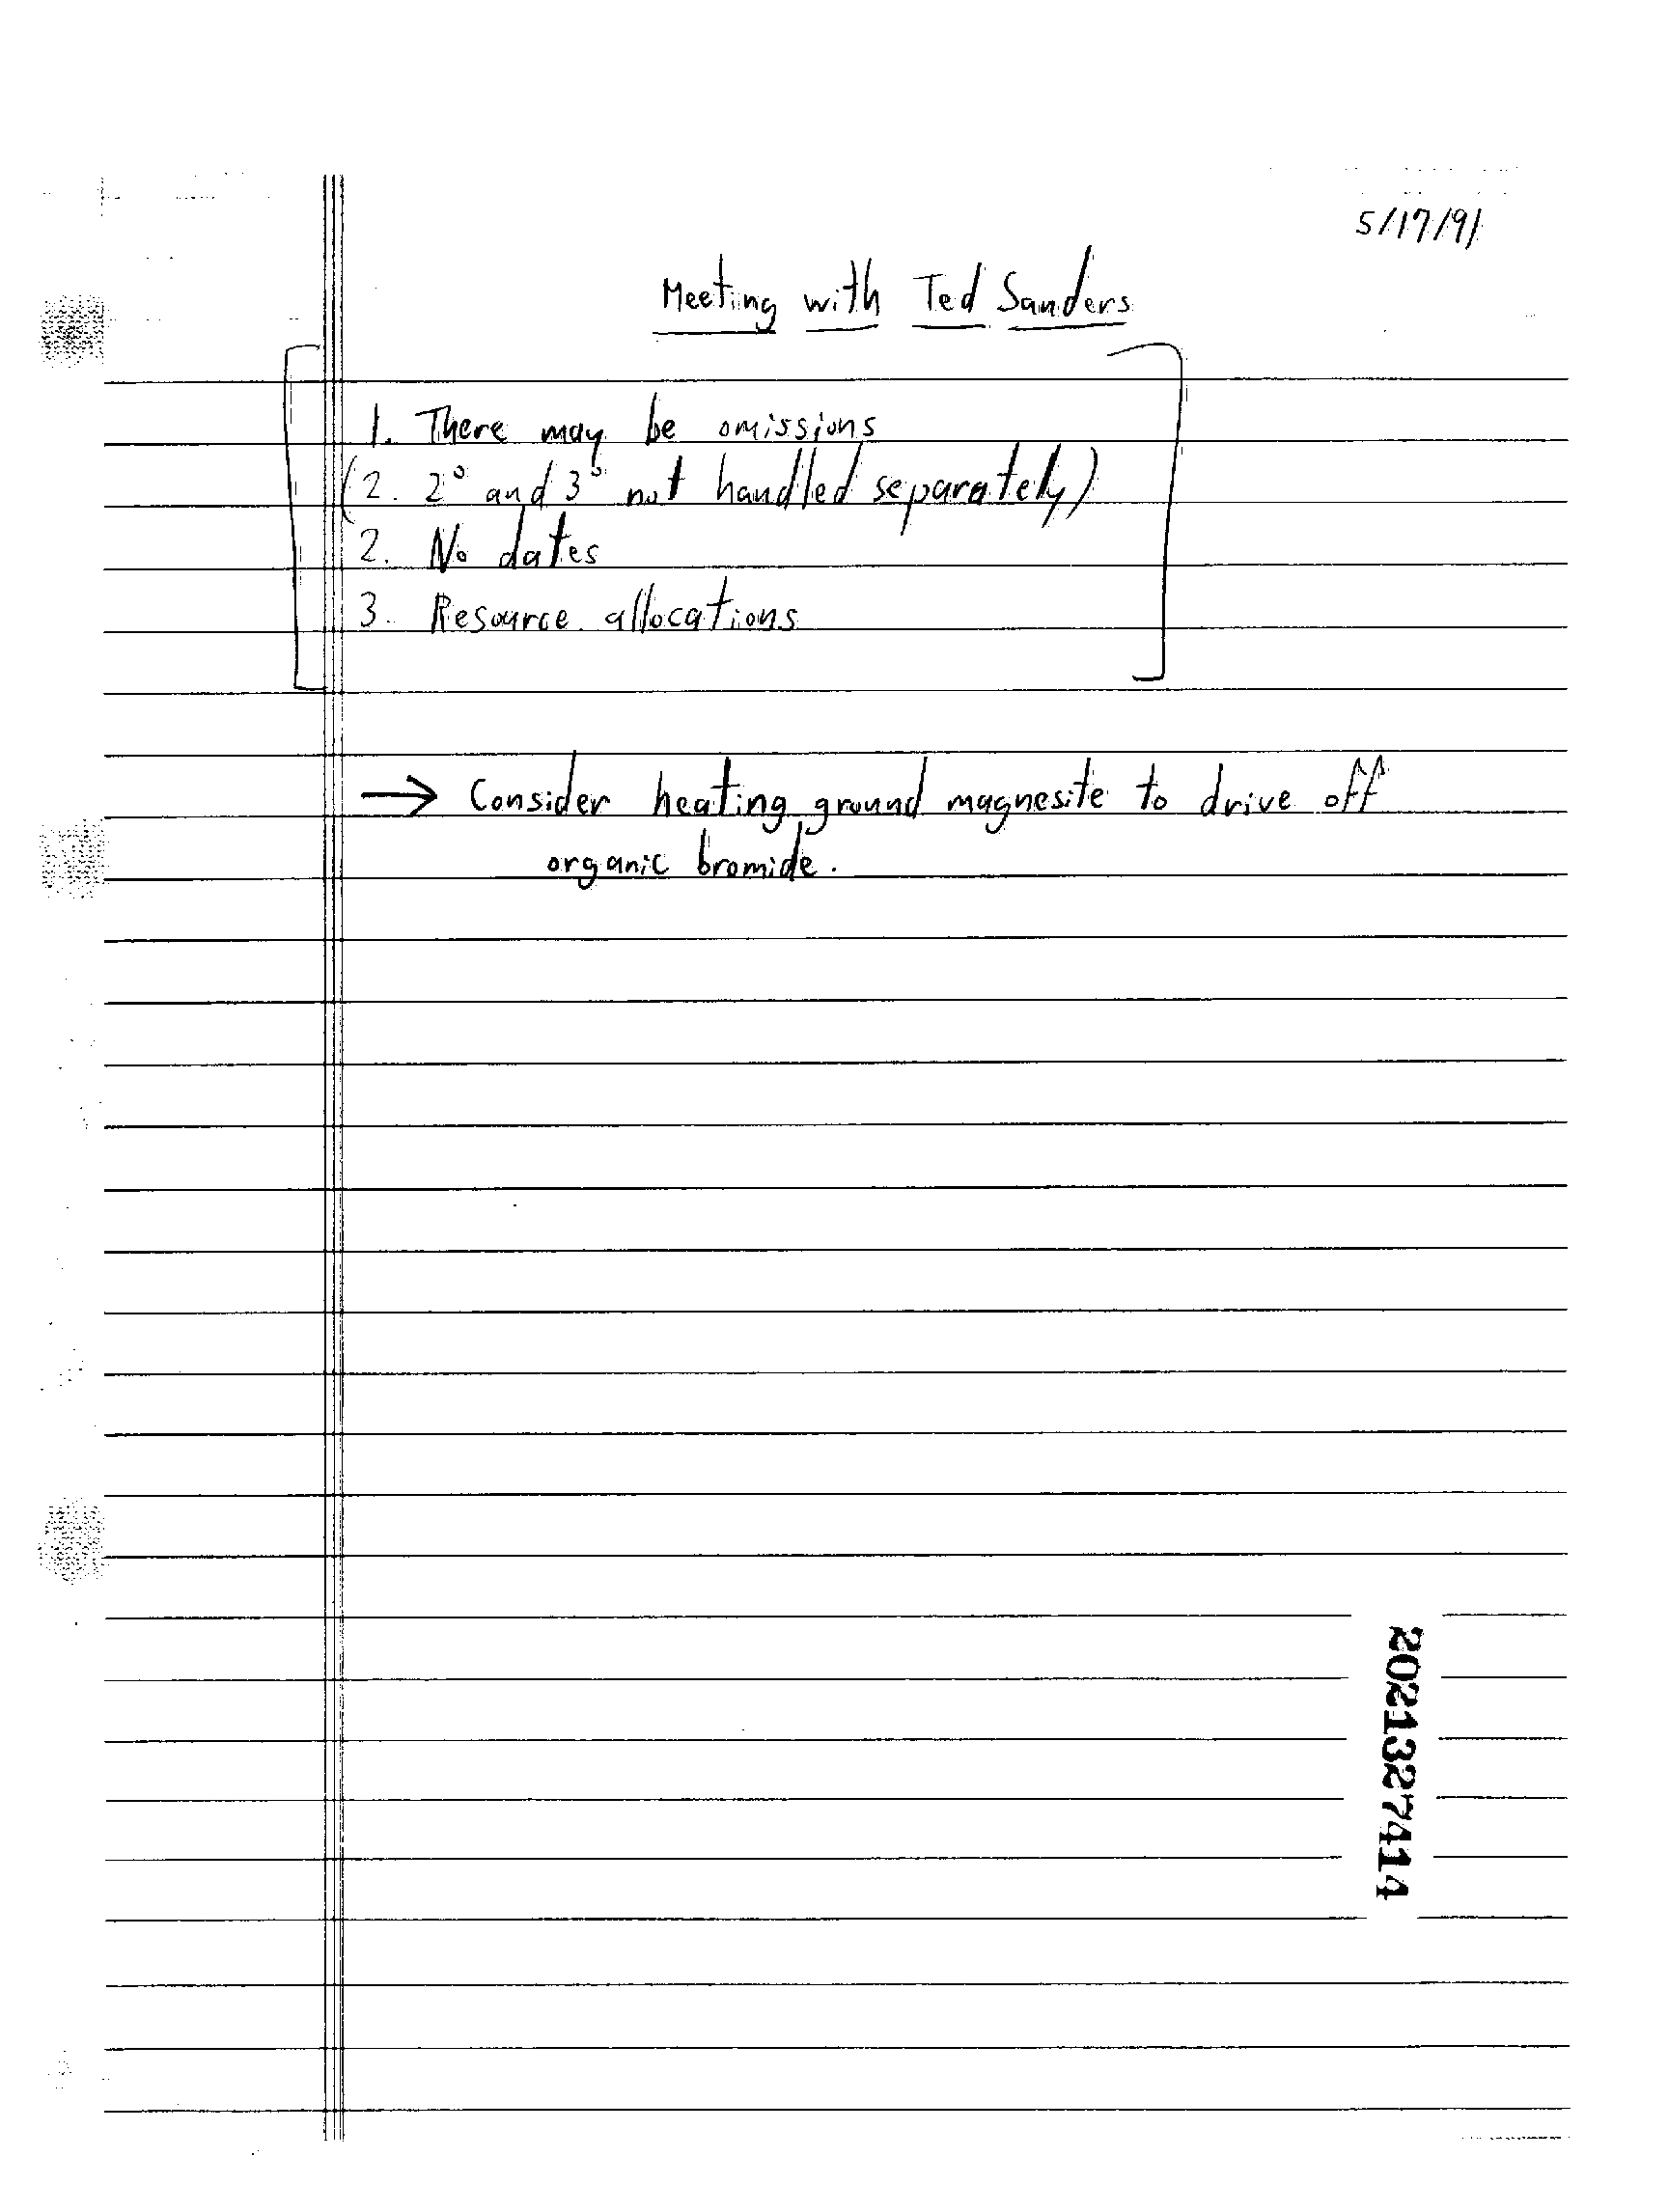 5/17/91
Meeting with Ted Sanders
1. There may be omissions
(2. 2° and 3° not handled separately)
2. No dates
3. Resource allocations
→ Consider heating ground magnesite to drive off
organic bromide.
2021327414